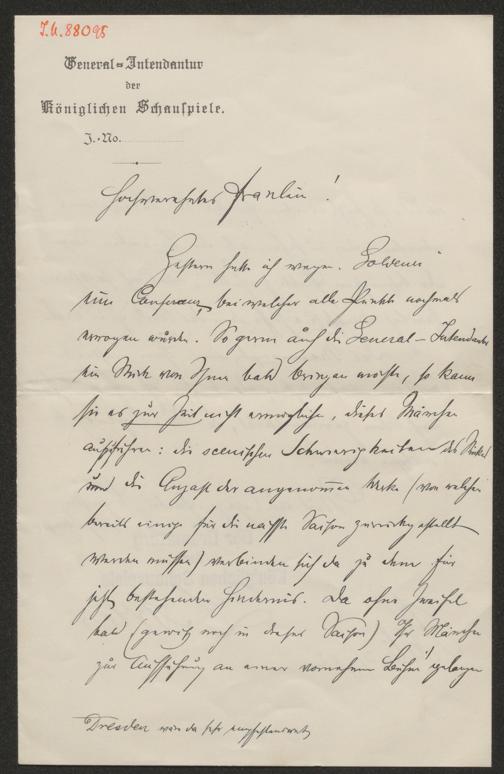 I.N.88095
General-Intendantur
der
Königlichen Schauspiele.
J.-No.
Hochverehrtes Fräulein!
Gestern hatte ich wegen
eine Conferenz, bei welcher alle Punkte nochmals
erwogen wurden. So gerne auch die General-Intendantur
ein Werk von Ihnen bald bringen möchte, so kann
sie es zur Zeit nicht ermöglichen, dieses Märchen
aufführen: die scenischen Schwierigkeiten des Stückes
und die Anzahl der angenommenen Werke (von welchen
bereits einige für die nächste Saison zurückgestellt
werden müssen) verbinden sich da zu dem für
jetzt bestehenden Hindernis. Da ohne Zweifel
bald (gewiß noch in dieser Saison) Ihr Märchen
zur Aufführung an einer vornehmen Bühne gelangen
Dresden wäre da sehr empfehlenswert